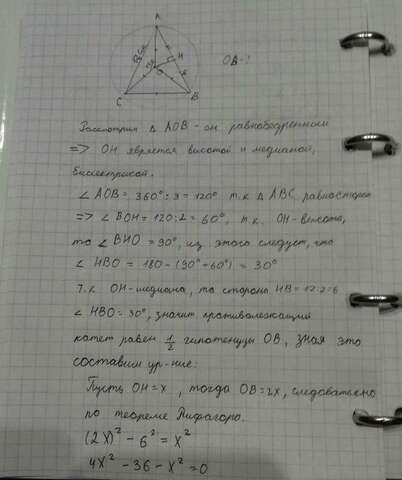 A
O
H
C
B
OB-?
Рассмотрим △ AOB - он равнобедренный
=> OH является высотой и медианой,
биссектрисой.
∠ AOB = 360° : 3 = 120° т.к △ ABC равносторон
=> ∠ BOH = 120 : 2 = 60°, т.к. OH - высота,
то ∠ BHO = 90°, из этого следует, что
∠ HBO = 180 - (90° + 60°) = 30°
Т.к OH - медиана, то сторона HB = 12 : 2 = 6
∠ HBO = 30°, значит противолежащий
катет равен 1/2 гипотенузы OB, зная это
составим ур-ние:
Пусть OH = x, тогда OB = 2x, следовательно
по теореме Пифагора.
(2x)² - 6² = x²
4x² - 36 - x² = 0